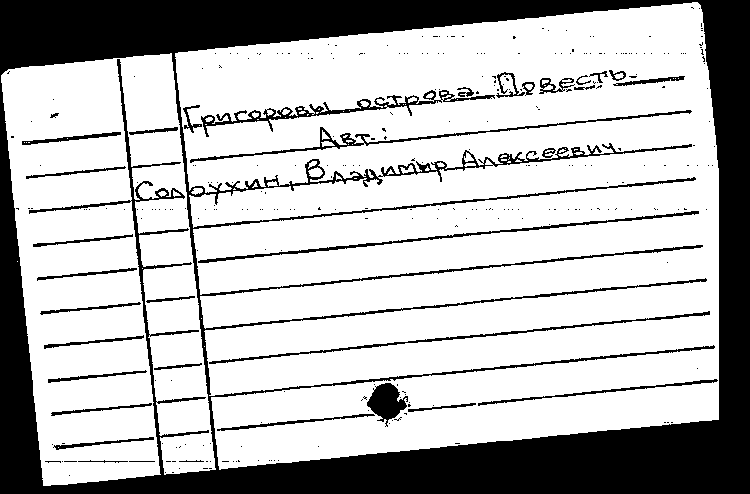 Григоровы острова. Повесть.
Авт.:
Солоухин, Владимир Алексеевич.